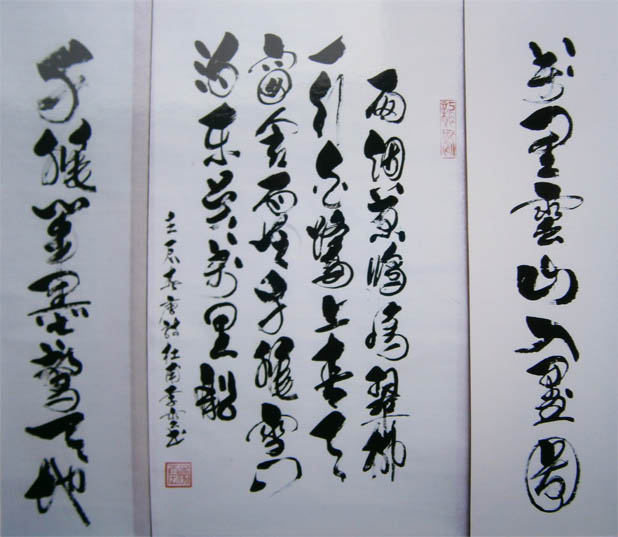 万里雲山入画图
两個黄鹂鸣翠柳
一行白鹭上青天
窗含西岭千秋雪门
泊东吴万里船
春唐诗杜甫李书
千秋笔墨惊天地